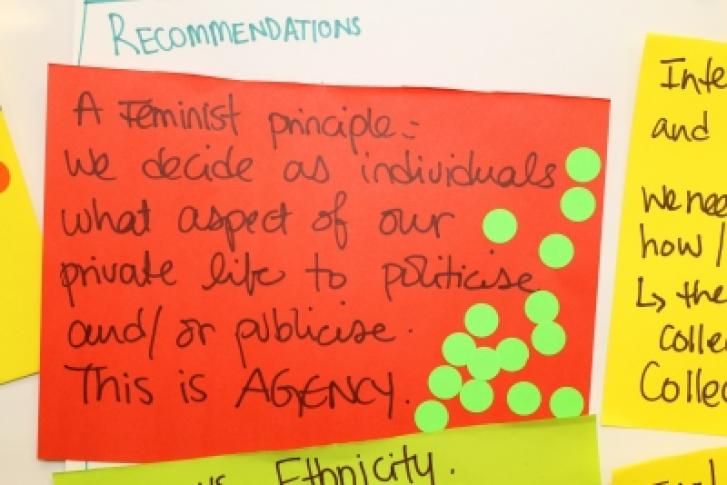 RECOMMENDATIONS
A Feminist principle:
we decide as individuals
what aspect of our
private life to politicise
and/or publicise.
This is AGENCY.
Ethnicity.
and
We need
how /
↳ the
Collec